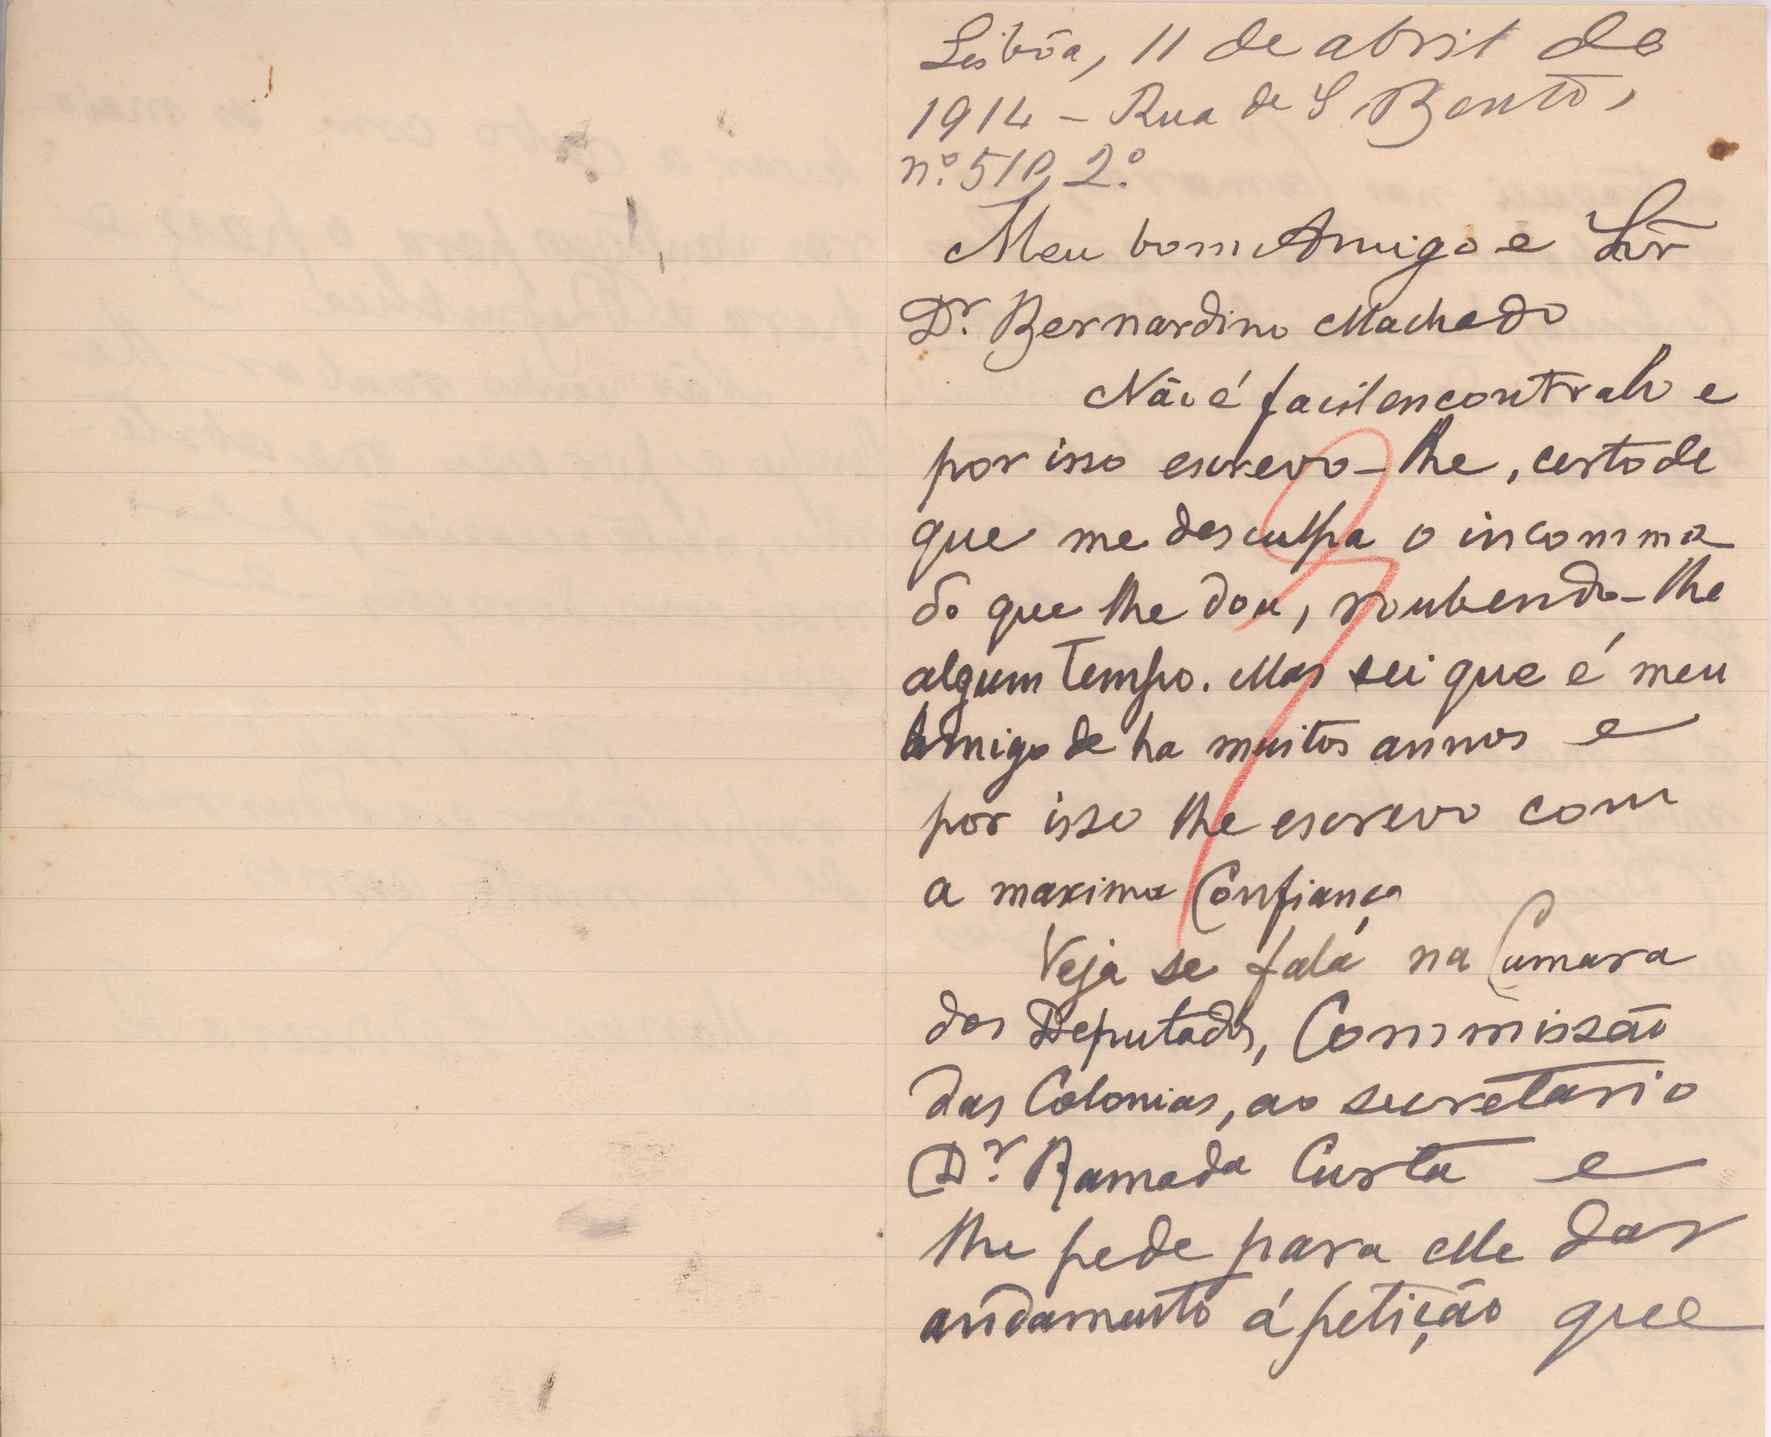 Lisbôa, 11 de abril de
1914 – Rua de S. Bento,
n.º 510, 2.º
Meu bom Amigo e Snr
Dr. Bernardino Machado
Não é facil encontral-o e
por isso escrevo-lhe, certo de
que me desculpa o incommo
do que lhe dou, roubando-lhe
algum tempo. Mas sei que é meu
Amigo de ha muitos annos e
por isso lhe escrevo com
a maxima Confiança
Veja se fala na Camara
dos Deputados, Commissão
das Colonias, ao secretario
Dr. Ramada Curto e
lhe pede para elle dar
andamento á petição que